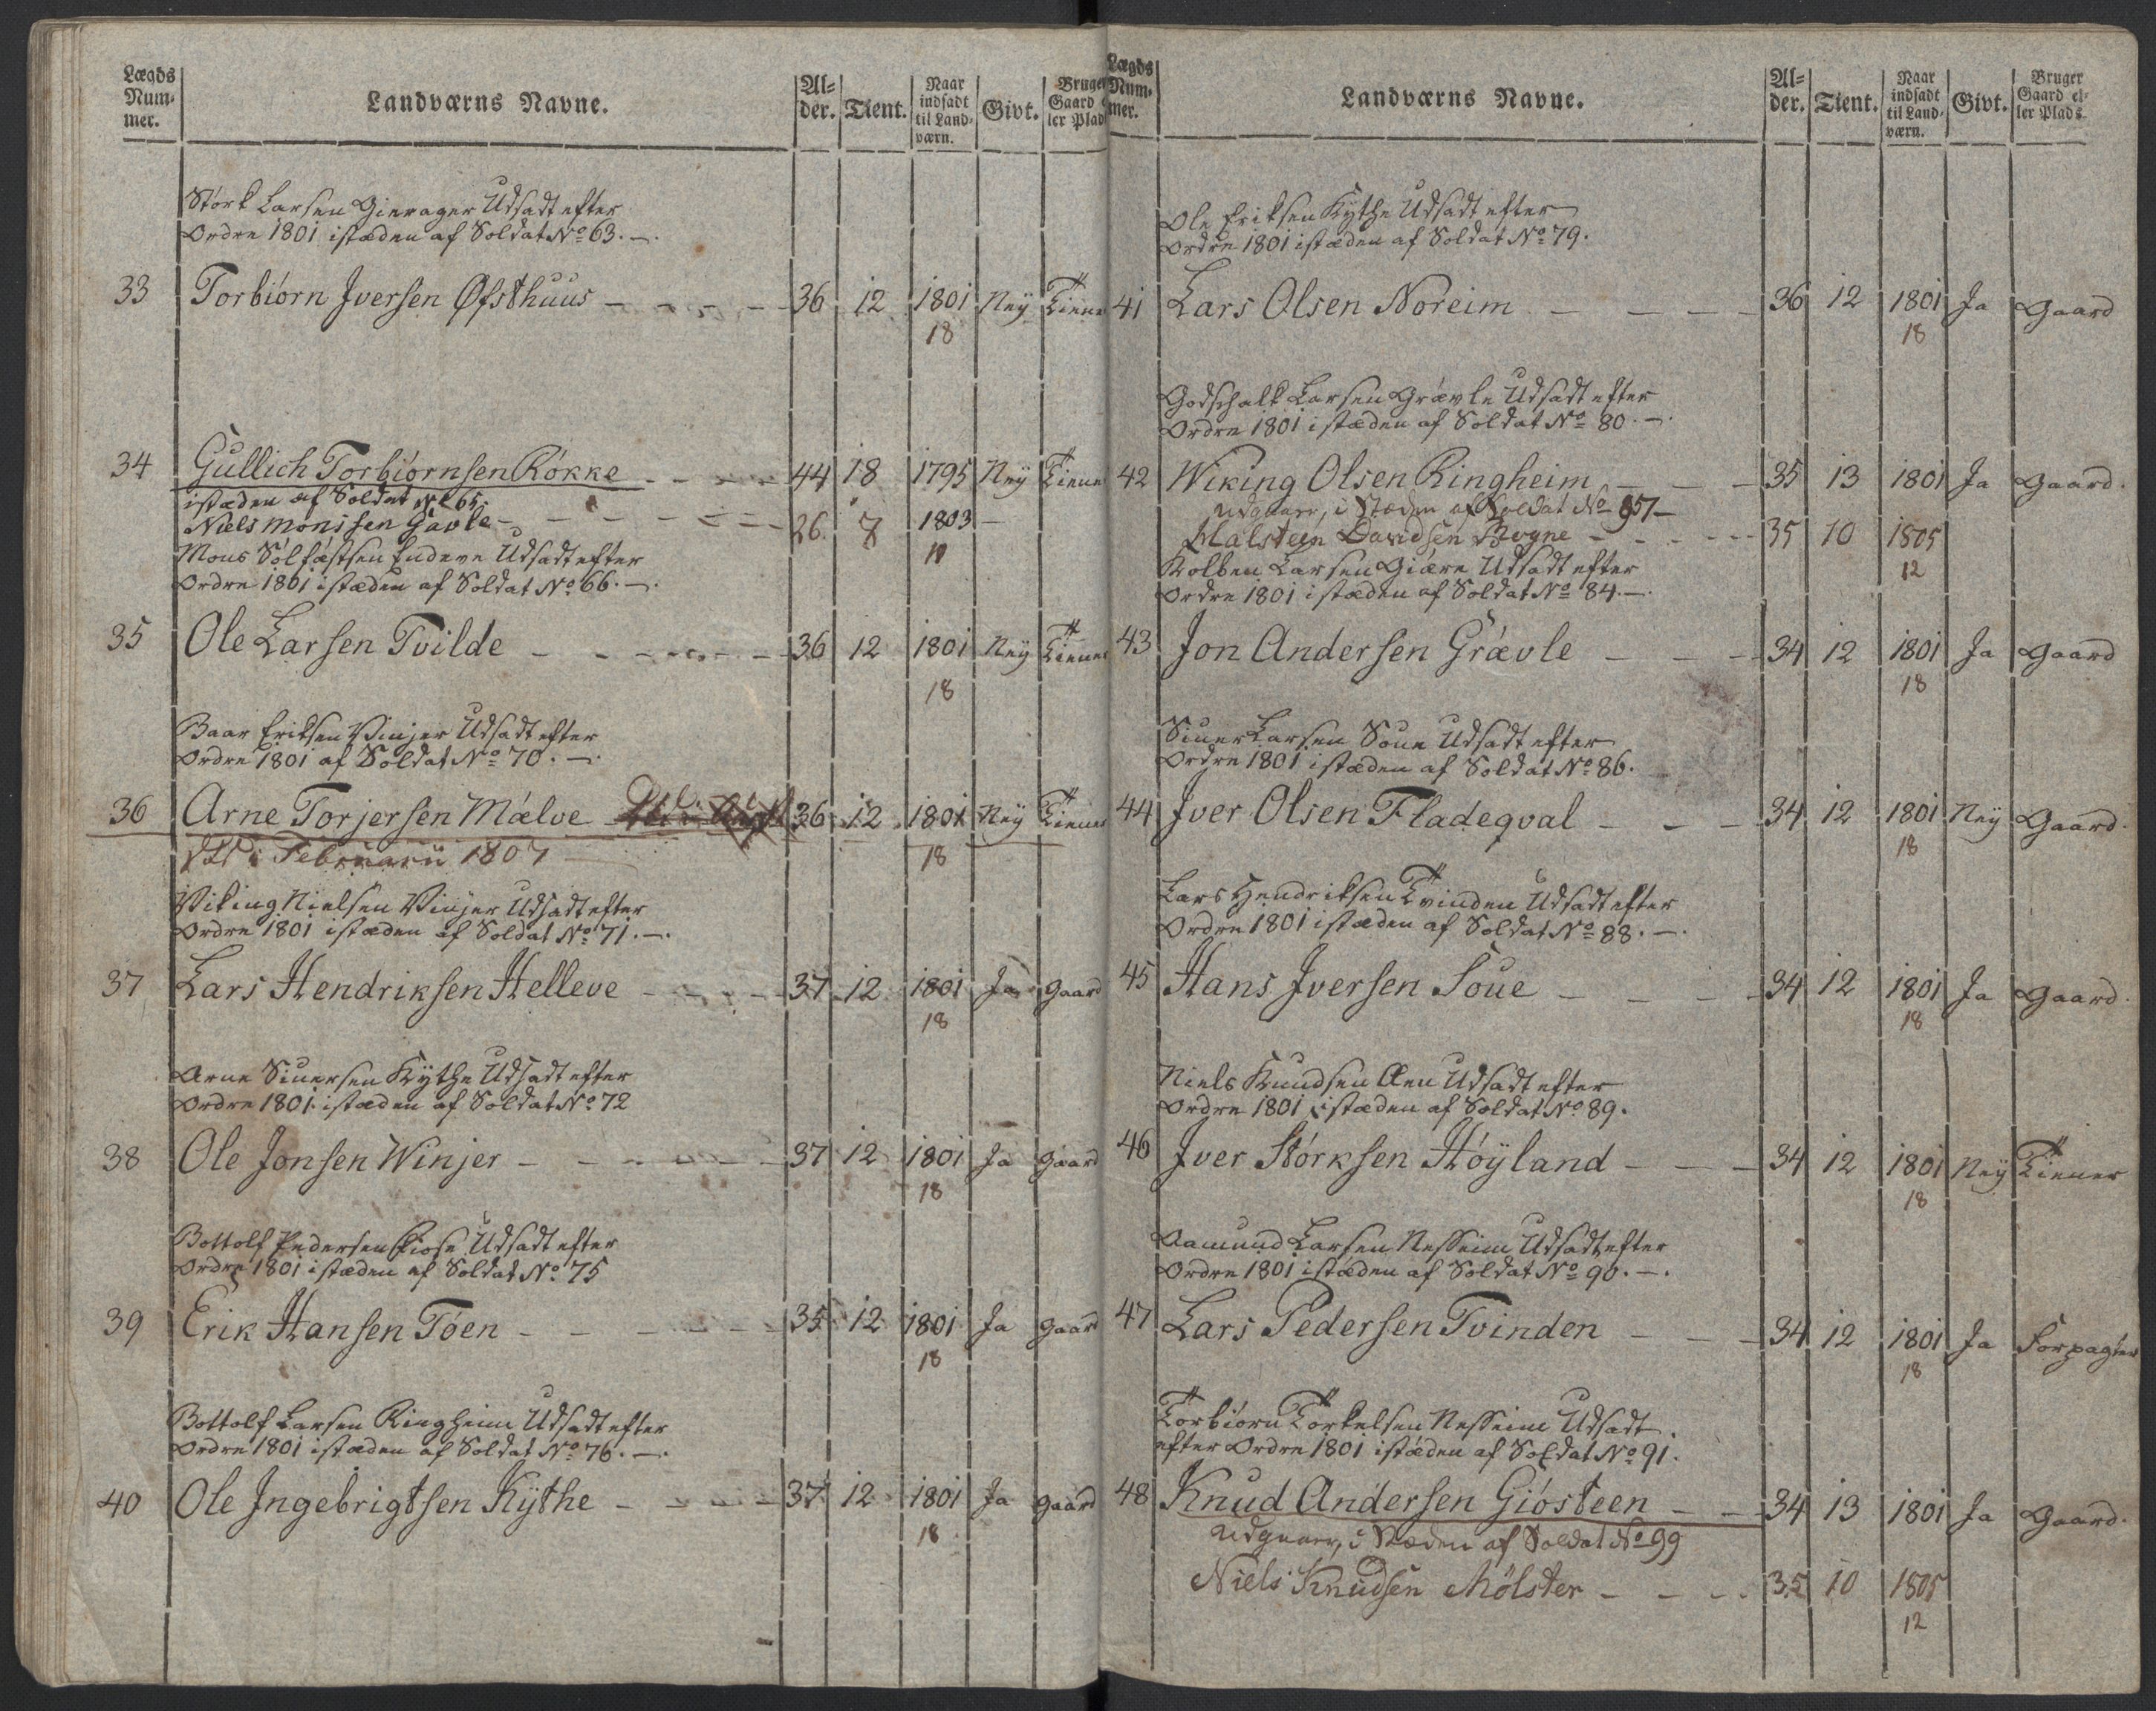 Lægds Num- mer. Landværns Navne. Al- der. Tient. Naar indsadt til Land- værn. Givt. Bruger Gaard ler Plad
Størk Larsen Gierager Udsadt efter
Ordre 1801 istæden af Soldat No 63. —.
33 Torbiørn Jversen Øfsthuus — — — 36 12 1801 Ney Tiener
18
34 Gullich Torbiørnsen Røkke — — 44 18 1795 Ney Tiener
istæden af Soldat No 65.
Niels Monssen Gavle — — — — 26. 7 1803 —
10
Mons Sølfæstsen Endeve Udsadt efter
Ordre 1801 istæden af Soldat No 66. —.
35 Ole Larsen Tvilde — — — 36 12 1801 Ney Tiener
18
Baar Eriksen Vinjer Udsadt efter
Ordre 1801 af Soldat No 70. —.
36 Arne Torjersen Mælve 36 12 1801 Ney Tiener
i Februarii 1807 18
Viking Nielsen Vinjer Udsadt efter
Ordre 1801 istæden af Soldat No 71. —.
37 Lars Hendriksen Helleve — — — 37 12 1801 Ja Gaard
18
Arne Siversen Kythe Udsadt efter
Ordre 1801 istæden af Soldat No 72
38 Ole Jonsen Winjer — — — 37 12 1801 Ja gaard
18
Bottolf Pedersen Udsadt efter
Ordre 1801 istæden af Soldat No 75
39 Erik Hansen Tøen — — — 35 12 1801 Ja gaard
18
Bottolf Larsen Ringheim Udsadt efter
Ordre 1801 istæden af Soldat No 76. —.
40 Ole Jngebrigtsen Kÿthe — — — 37 12 1801 Ja gaard
18
Lægds Num- mer. Landværns Navne. Al- der. Tient. Naar indsadt til Land- værn. Givt. Bruger Gaard el- ler Plads.
Ole Eriksen Kÿthe Udsadt efter
Ordre 1801 istæden af Soldat No 79.
41 Lars Olsen Noreim — — — — 36 12 1801 Ja Gaard
18
Godschalk Larsen Grævle Udsadt efter
Ordre 1801 istæden af Soldat No 80. —.
42 Wiking Olsen Ringheim — — — 35 13 1801 Ja Gaard.
udgaaer, i Stæden af Soldat No 957 —
Malsteen Davidsen Bogne — — — 35 10 1805
12
Kolben Larsen Giære Udsadt efter
Ordre 1801 istæden af Soldat No 84. —.
43 Jon Andersen Grævle — — — 34 12 1801 Ja Gaard
18
Siver Larsen Soue Udsadt efter
Ordre 1801 istæden af Soldat No 86.
44 Jver Olsen Fladeqval — — — 34 12 1801 Ney Gaard.
18
Lars Hendriksen Tvinden Udsadt efter
Ordre 1801 istæden af Soldat No 88. —.
45 Hans Jversen Soue — — — — 34 12 1801 Ja Gaard.
18
Niels Knudsen Æen Udsadt efter
Ordre 1801 istæden af Soldat No 89.
46 Jver Størksen Høÿland — — — 34 12 1801 Neÿ Tiener
18
Aamund Larsen Nesseim Udsadt efter
Ordre 1801 istæden af Soldat No 90. —.
47 Lars Pedersen Tvinden — — — 34 12 1801 Ja Forpagter
18
Torbiørn Torkelsen Nesseim Udsadt
efter Ordre 1801 istæden af Soldat No 91.
48 Knud Andersen Giøsteen — — 34 13 1801 Ja Gaard.
udgaaer, i Stæden af Soldat No 99
Niels Knudsen Mølster — — — 35 10 1805
12